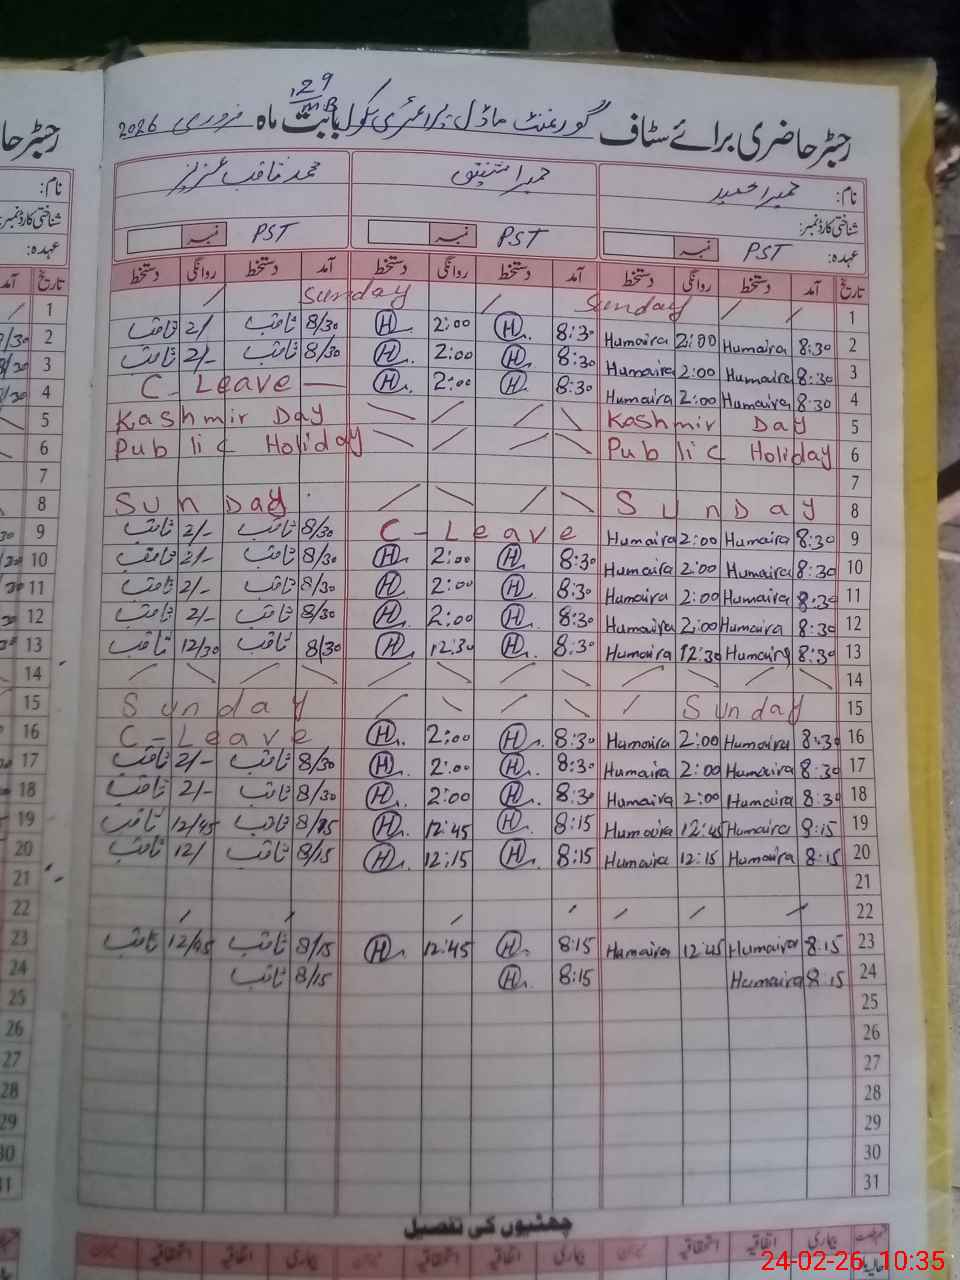 رجسٹر حاضری برائے سٹاف گورنمنٹ ماڈل پرائمری سکول بابت ماہ فروری 2026
نام: حمیرا حمید حمیرا محمد ثاقب عزیز
شناختی کارڈ نمبر:
عہدہ: PST نمبر PST نمبر PST نمبر
تاریخ آمد دستخط روانگی دستخط آمد دستخط روانگی دستخط آمد دستخط روانگی دستخط
1 / / Sunday / Sunday / 1
2 8:30 Humaira 2:00 Humaira 8:30 H 2:00 H 8/30 ثاقب 2/ ثاقب 2
3 8:30 Humaira 2:00 Humaira 8:30 H 2:00 H 8/30 ثاقب 2/- ثاقب 3
4 8:30 Humaira 2:00 Humaira 8:30 H 2:00 H C Leave — 4
5 Kashmir Day Kashmir Day 5
6 Public Holiday Public Holiday 6
7 7
8 SunDay Sun Day 8
9 8:30 Humaira 2:00 Humaira C-Leave 8/30 ثاقب 2/- ثاقب 9
10 8:30 Humaira 2:00 Humaira 8:30 H 2:00 H 8/30 ثاقب 2/- ثاقب 10
11 8:30 Humaira 2:00 Humaira 8:30 H 2:00 H 8/30 ثاقب 2/- ثاقب 11
12 8:30 Humaira 2:00 Humaira 8:30 H 2:00 H 8/30 ثاقب 2/- ثاقب 12
13 8:30 Humaira 12:30 Humaira 8:30 H 12:30 H 8/30 ثاقب 12/30 ثاقب 13
14 14
15 Sunday Sunday 15
16 8:30 Humaira 2:00 Humaira 8:30 H 2:00 H C-Leave 16
17 8:30 Humaira 2:00 Humaira 8:30 H 2:00 H 8/30 ثاقب 2/- ثاقب 17
18 8:30 Humaira 2:00 Humaira 8:30 H 2:00 H 8/30 ثاقب 2/- ثاقب 18
19 8:15 Humaira 12:45 Humaira 8:15 H 12:45 H 8/15 ثاقب 12/45 ثاقب 19
20 8:15 Humaira 12:15 Humaira 8:15 H 12:15 H 8/15 ثاقب 12/ ثاقب 20
21 21
22 22
23 8:15 Humaira 12:45 Humaira 8:15 H 12:45 H 8/15 ثاقب 12/45 ثاقب 23
24 8:15 Humaira 8:15 H 8/15 ثاقب 24
25 25
26 26
27 27
28 28
29 29
30 30
31 31
چھٹیوں کی تفصیل
بیماری اتفاقیہ استحقاقیہ بیماری اتفاقیہ استحقاقیہ بیماری اتفاقیہ استحقاقیہ
24-02-26, 10:35